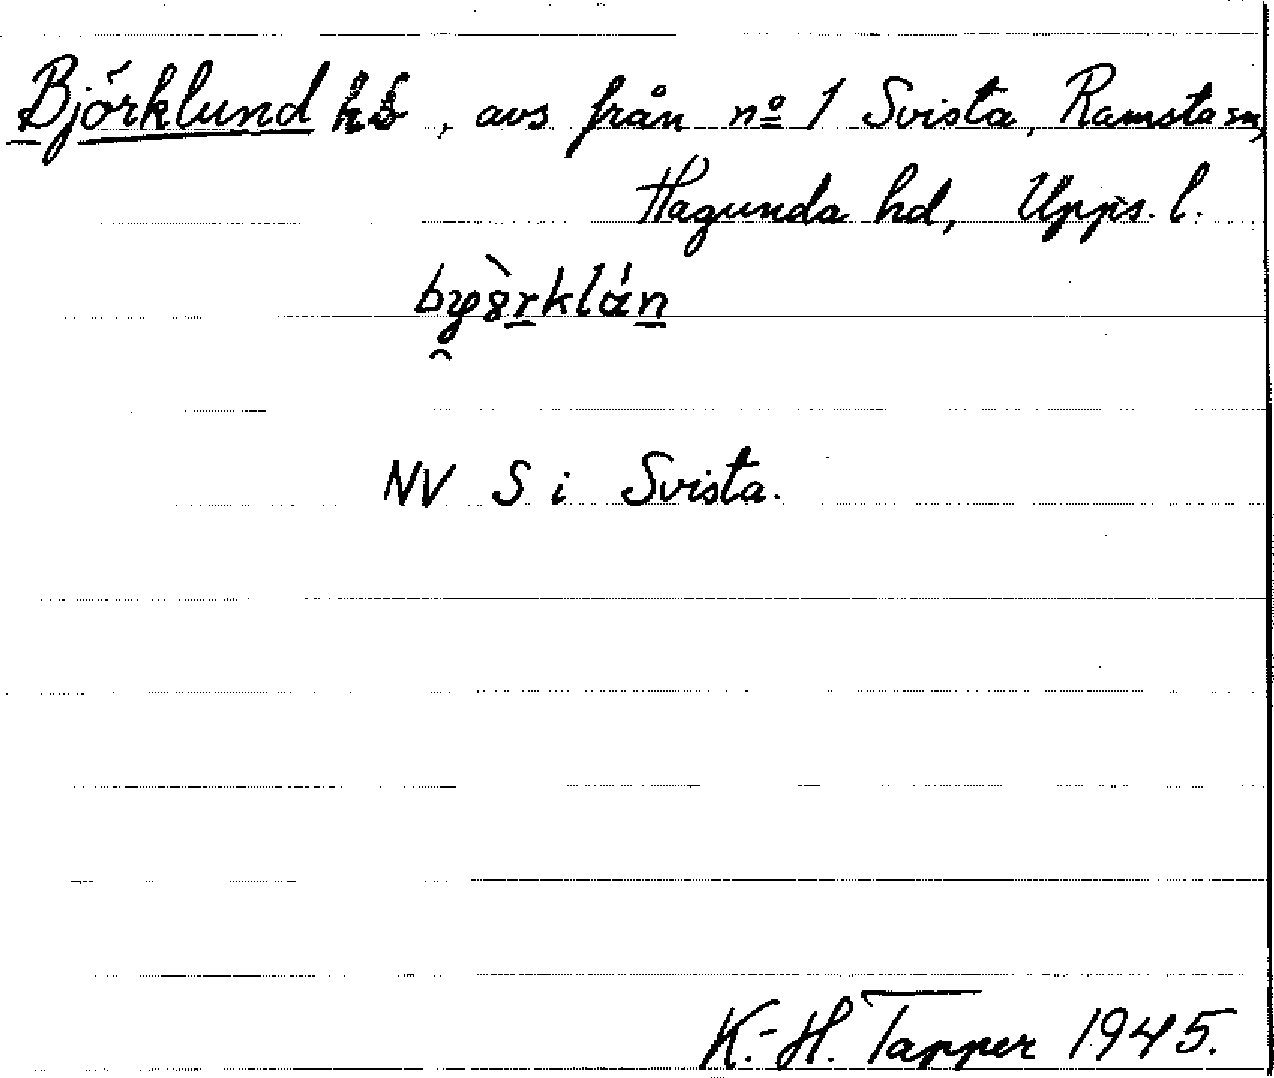 Björklund hs, avs från nº 1 Svista, Ramsta sn,
Hagunda hd, Upps. l.
NV S i Svista.
K.-H. Tapper 1945.